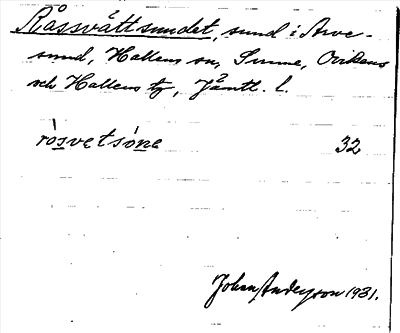 Råssvåttsundet, sund i Arve-
sund, Hallens sn, Sunne, Ovikens
och Hallens tg, Jämtl. l.
rósvetsóne 32
Johan Anderson 1931.